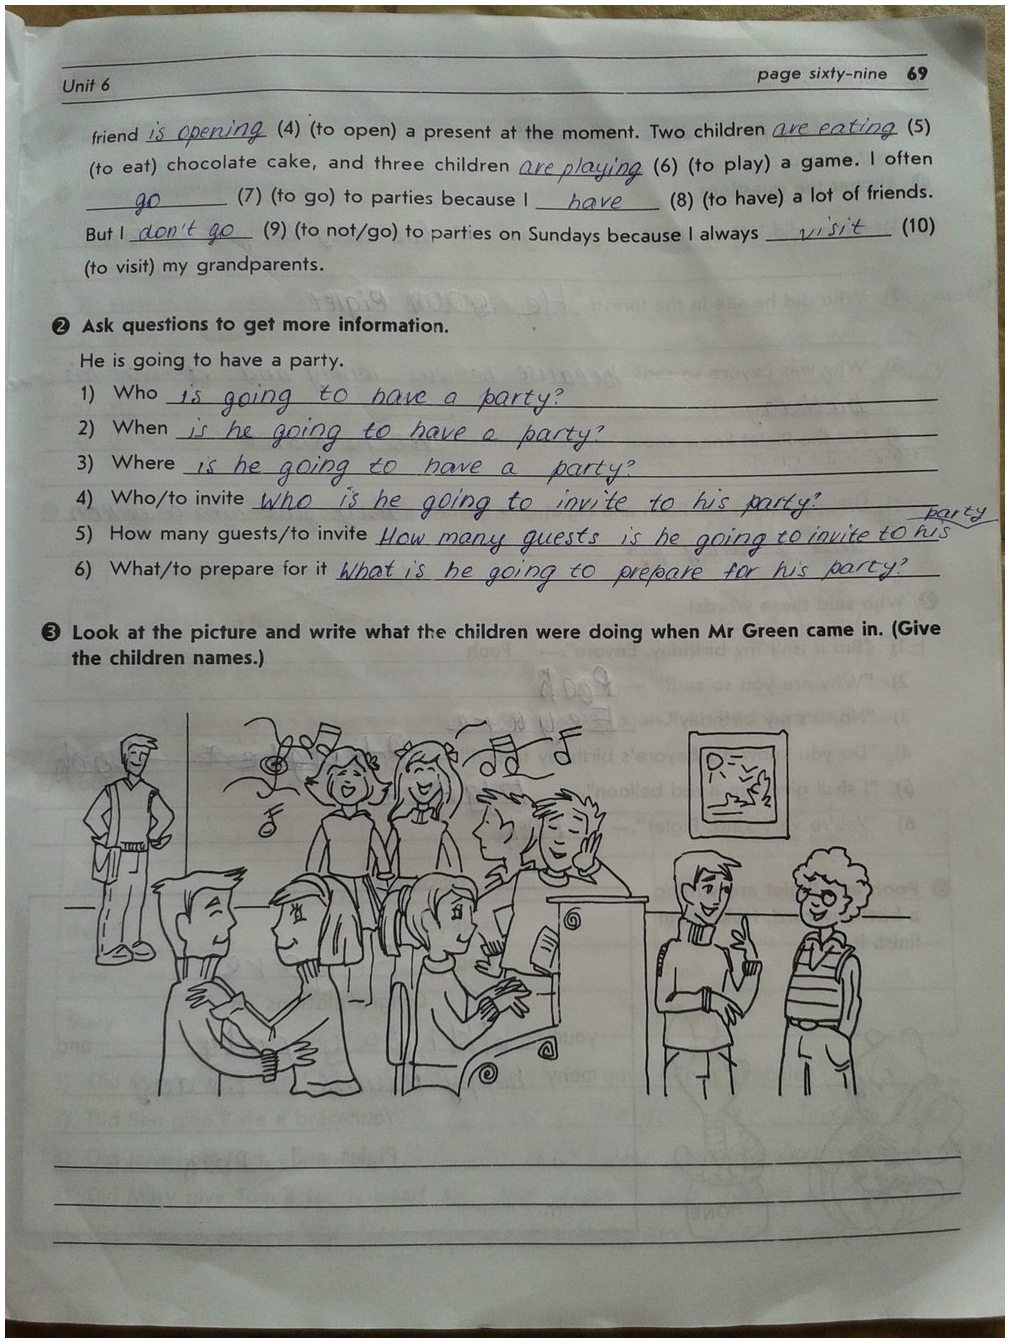 Unit 6 page sixty-nine 69
friend is opening (4) (to open) a present at the moment. Two children are eating (5)
(to eat) chocolate cake, and three children are playing (6) (to play) a game. I often
go (7) (to go) to parties because I have (8) (to have) a lot of friends.
But I don't go (9) (to not/go) to parties on Sundays because I always visit (10)
(to visit) my grandparents.
2 Ask questions to get more information.
He is going to have a party.
1) Who is going to have a party?
2) When is he going to have a party?
3) Where is he going to have a party?
4) Who/to invite Who is he going to invite to his party?
5) How many guests/to invite How many guests is he going to invite to his party
6) What/to prepare for it What is he going to prepare for his party?
3 Look at the picture and write what the children were doing when Mr Green came in. (Give
the children names.)